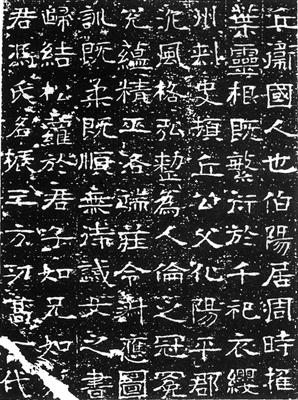 丘國人也伯陽居周時推
葉靈根既繁衍於千祀衣纓
州刺史頓丘公父化陽平郡
風格弘整為人倫之冠冕
蘊精巫洛端莊令淑應圖
訓既柔既順無違誡女之書
歸結松蘿於君子如兄如
君馮氏名振五方功高一代